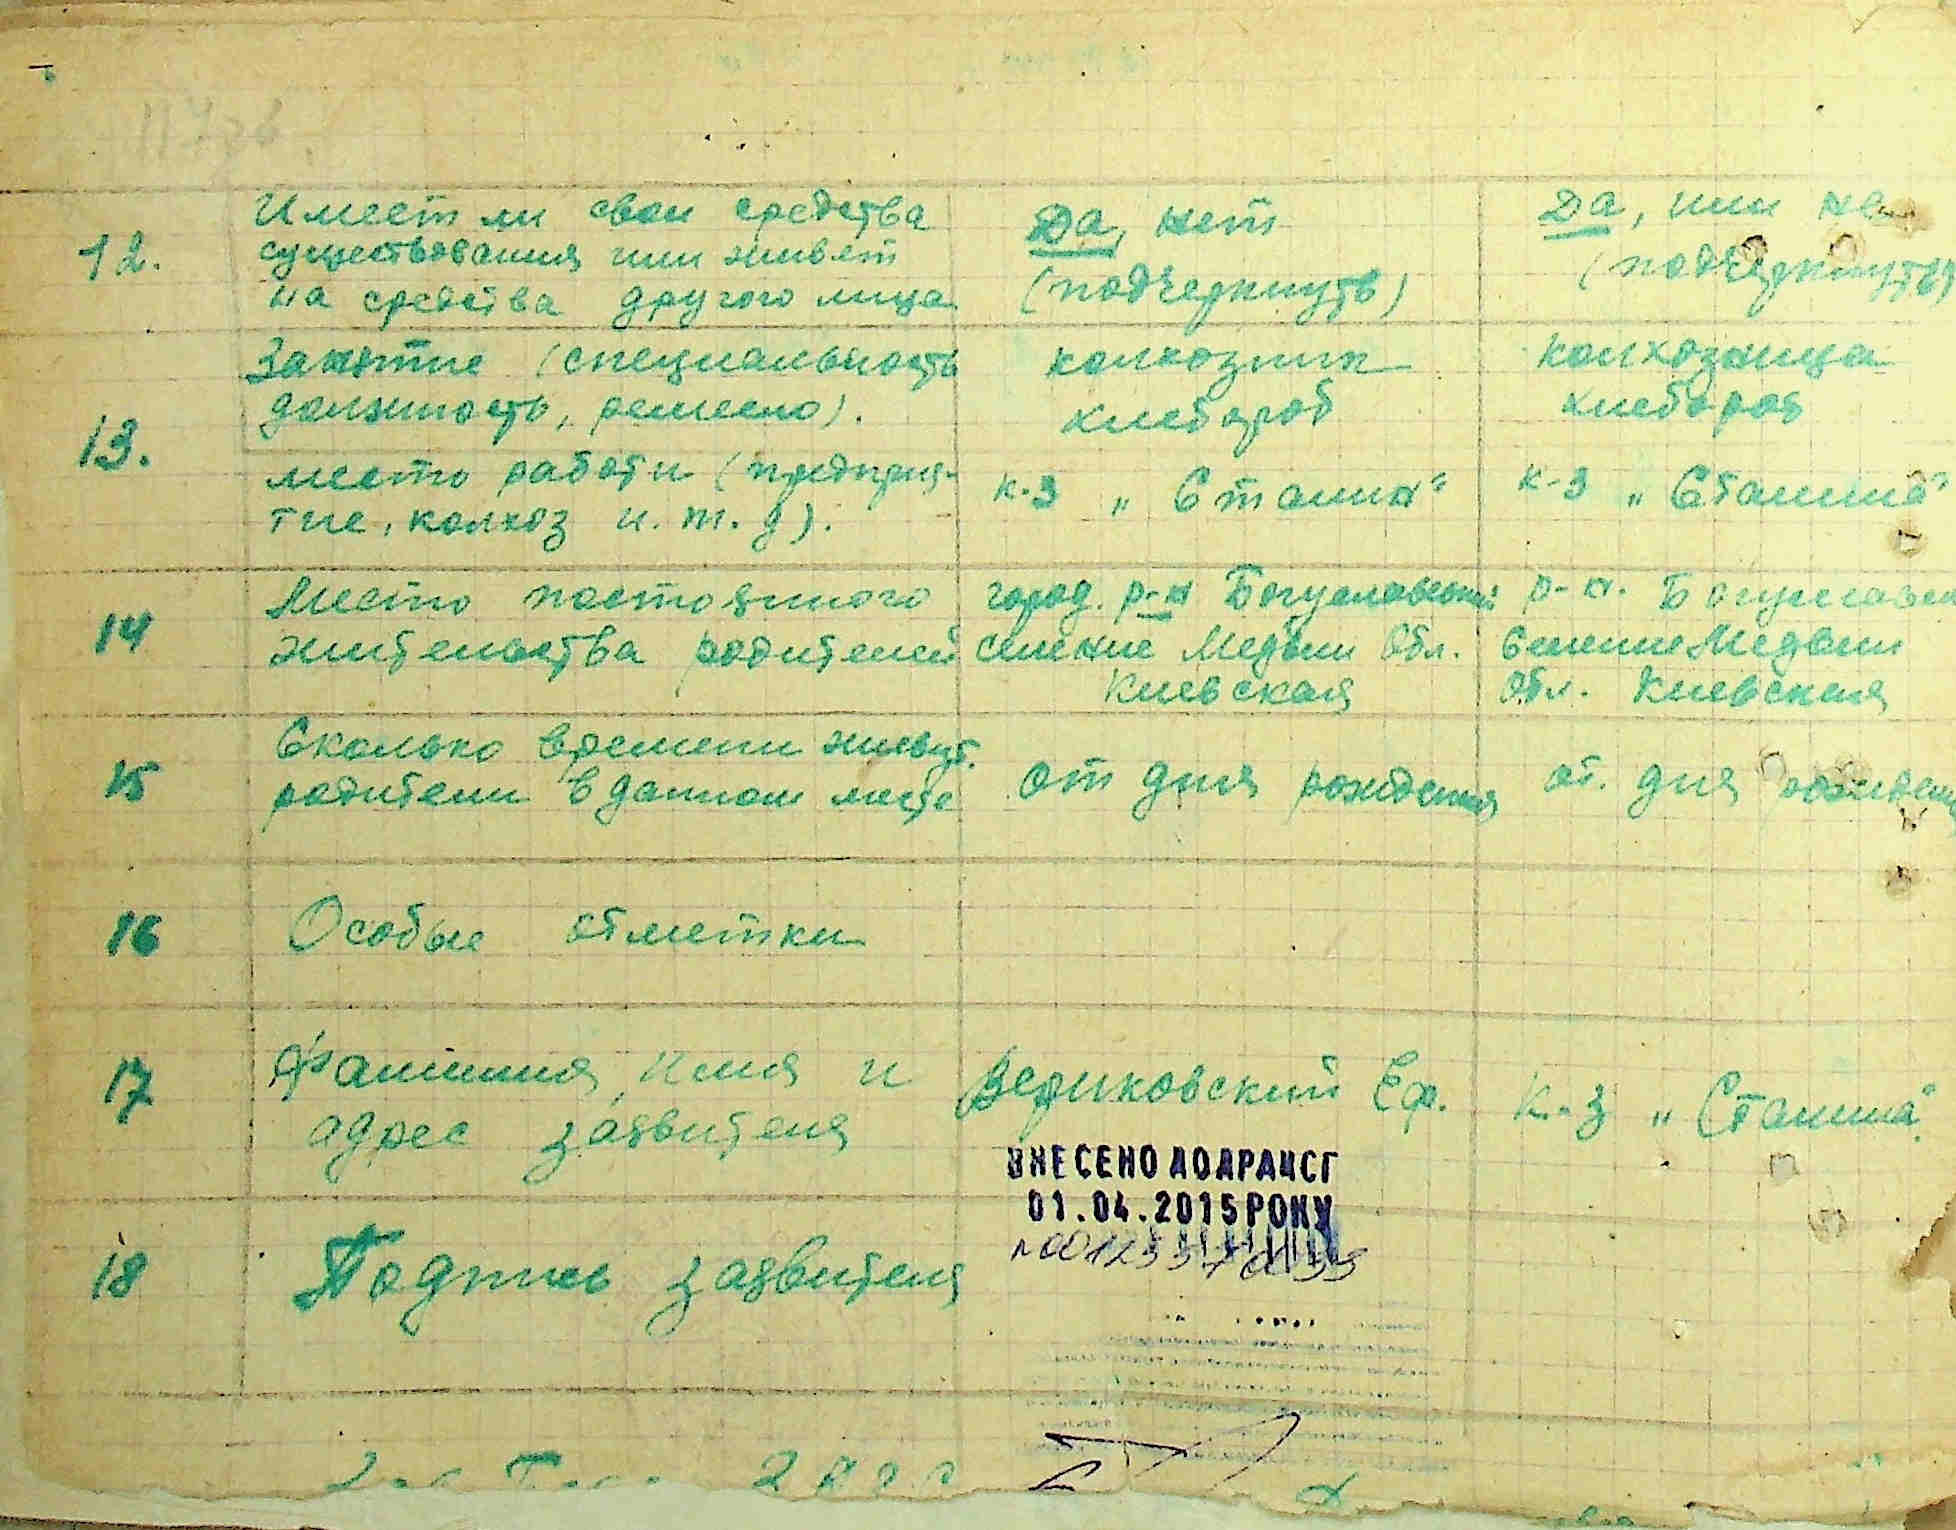 12.
Имеет ли свои средства
существования или живет
на средства другого лица
Да, нет
(подчеркнуть)
Да, или не
(подчеркнуть)
13.
Занятие (специальность
должность, ремесло).
колхозник
хлебороб
колхозница
хлебороб
место работи (предприя-
тие, колхоз и. т. д).
к-з „Сталин"
к-з „Сталина"
14
Место постоянного
жительства родителей
город. р-н Богуславский
селение Медвин Обл.
Киевская
р-н. Богуславск
Селение Медвин
Обл. Киевская
15
Сколько времени живут.
родители в данном месте
от дня рождения
от. дня рождени
16
Особые отметки
17
Фамилия, имя и
адрес заявителя
Вериковский Еф.
К-з „Сталина".
ВНЕСЕНО ДО ДРАЦСГ
01.04.2015 РОКУ
18
Подпись заявителя